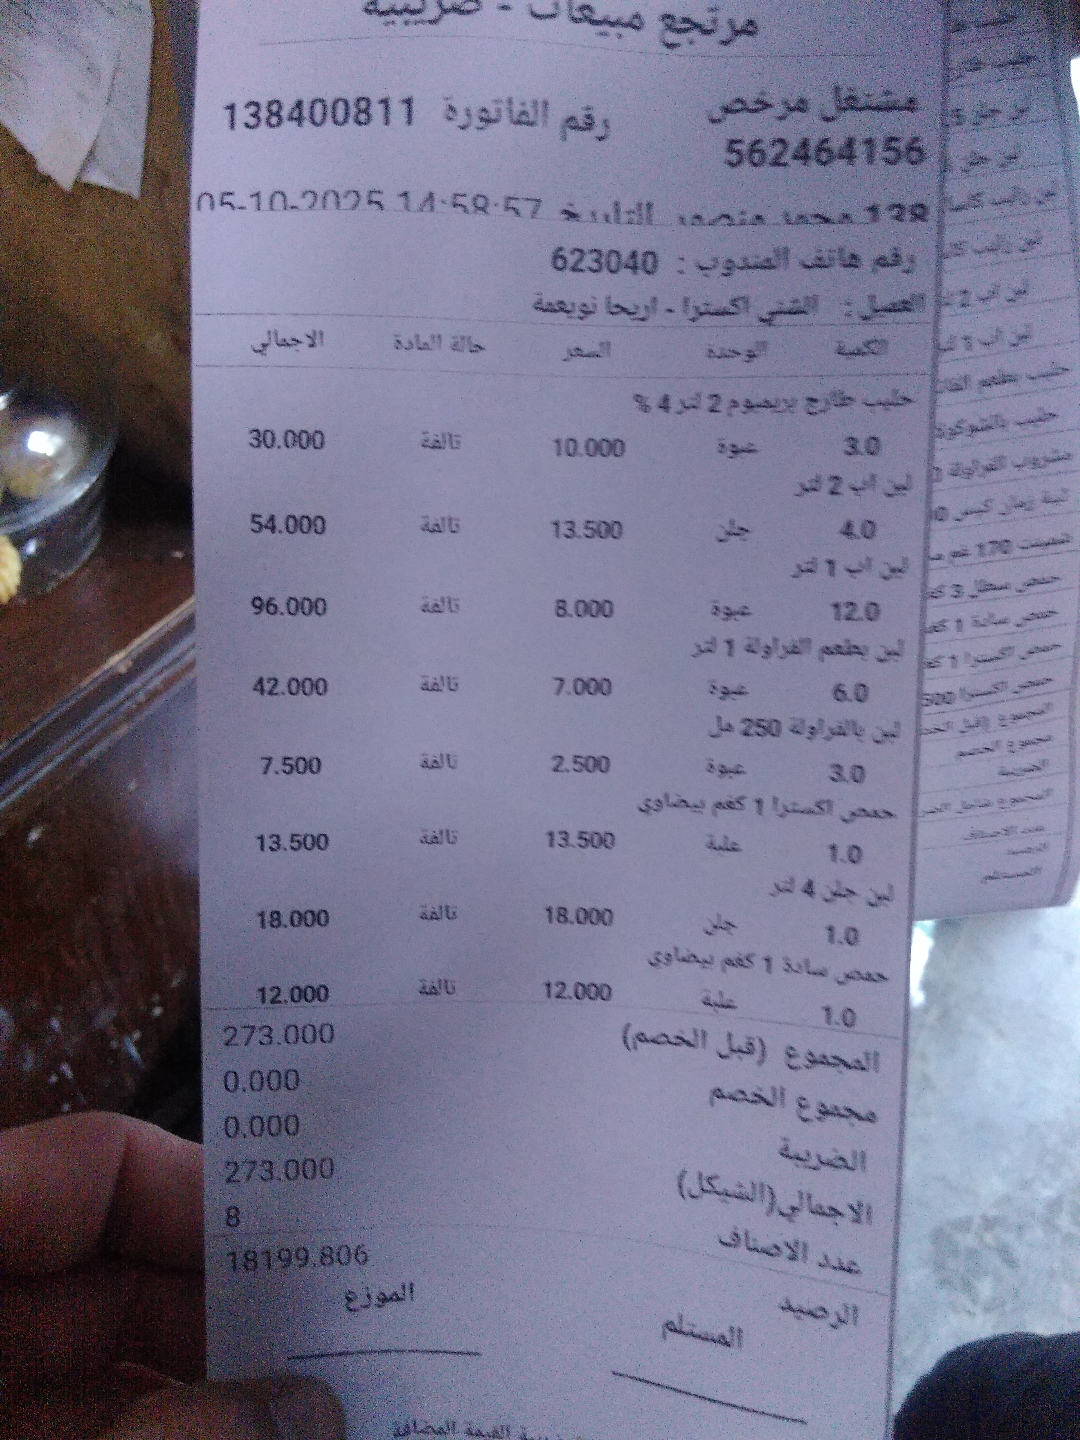 مرتجع مبيعات - ضريبية
مشتغل مرخص رقم الفاتورة 138400811
562464156
138 محمد منصور التاريخ 14:58:57 05-10-2025
رقم هاتف المندوب : 623040
العميل : الشني اكسترا - اريحا نويعمة
الكمية الوحدة السعر حالة المادة الاجمالي
حليب طازج بريميوم 2 لتر 4 %
3.0 عبوة 10.000 تالفة 30.000
لبن اب 2 لتر
4.0 جلن 13.500 تالفة 54.000
لبن اب 1 لتر
12.0 عبوة 8.000 تالفة 96.000
لبن بطعم الفراولة 1 لتر
6.0 عبوة 7.000 تالفة 42.000
لبن بالفراولة 250 مل
3.0 عبوة 2.500 تالفة 7.500
حمص اكسترا 1 كغم بيضاوي
1.0 علبة 13.500 تالفة 13.500
لبن جلن 4 لتر
1.0 جلن 18.000 تالفة 18.000
حمص سادة 1 كغم بيضاوي
1.0 علبة 12.000 تالفة 12.000
المجموع (قبل الخصم) 273.000
مجموع الخصم 0.000
الضريبة 0.000
الاجمالي(الشيكل) 273.000
عدد الاصناف 8
الرصيد 18199.806
المستلم الموزع
القيمة المضافة
لبن اب 2
لبن اب 1 لتر
حليب بطعم
مشروب الفراولة
حمص سطل 3
حمص سادة 1
حمص اكسترا 1
حمص اكسترا 500
المجموع (قبل
مجموع الخصم
الضريبة
المجموع شامل
عدد الاصناف
الرصيد
المستلم